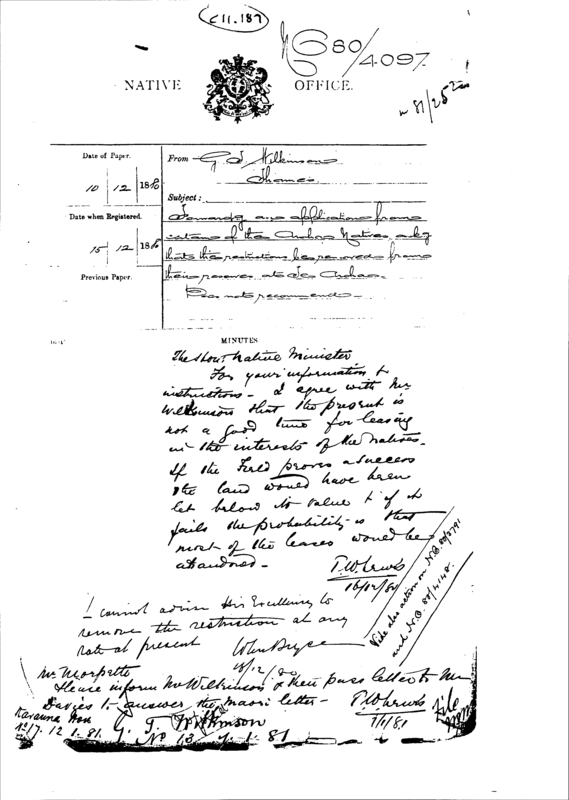 C 11.187
NO 80/4097.
NATIVE OFFICE.
Date of Paper.
10 12 1880
From G. T. Wilkinson
Thames
Subject:
Forwardg an application from
of the Natives askg
that the restrictions be removed from
their reserves at Te Aroha.
Does not recommend.
Date when Registered.
15 12 1880
Previous Paper.
MINUTES
The Hon: Native Minister
For your information &
instructions. I agree with Mr
Wilkinson that the present is
not a good time for leasing
in the interests of the Natives.
If the Field proves a success
the land would have been
let below its value & if it
fails the probability is that
most of the leases would be
abandoned.
T.W. Lewis
16/12/80
Vide also action on N.O. 80/3791
and N.O. 80/4148.
I cannot advise His Excellency to
remove the restriction at any
rate at present
John Bryce
/12/80
Mr Morpeth
Please inform Mr Wilkinson & then pass letter to Mr
Davies to answer the maori letter. T.W. Lewis
7/1/81
File
No 17. 12.1.81. G. T. Wilkinson
No 13 7.1.81